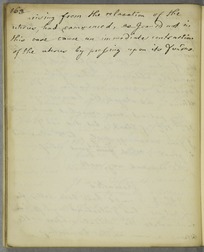 168
rising from the relaxation of the
uterus, had commenced, to
this case cause an immediate contraction
of the uterus by pressing upon its Fundus